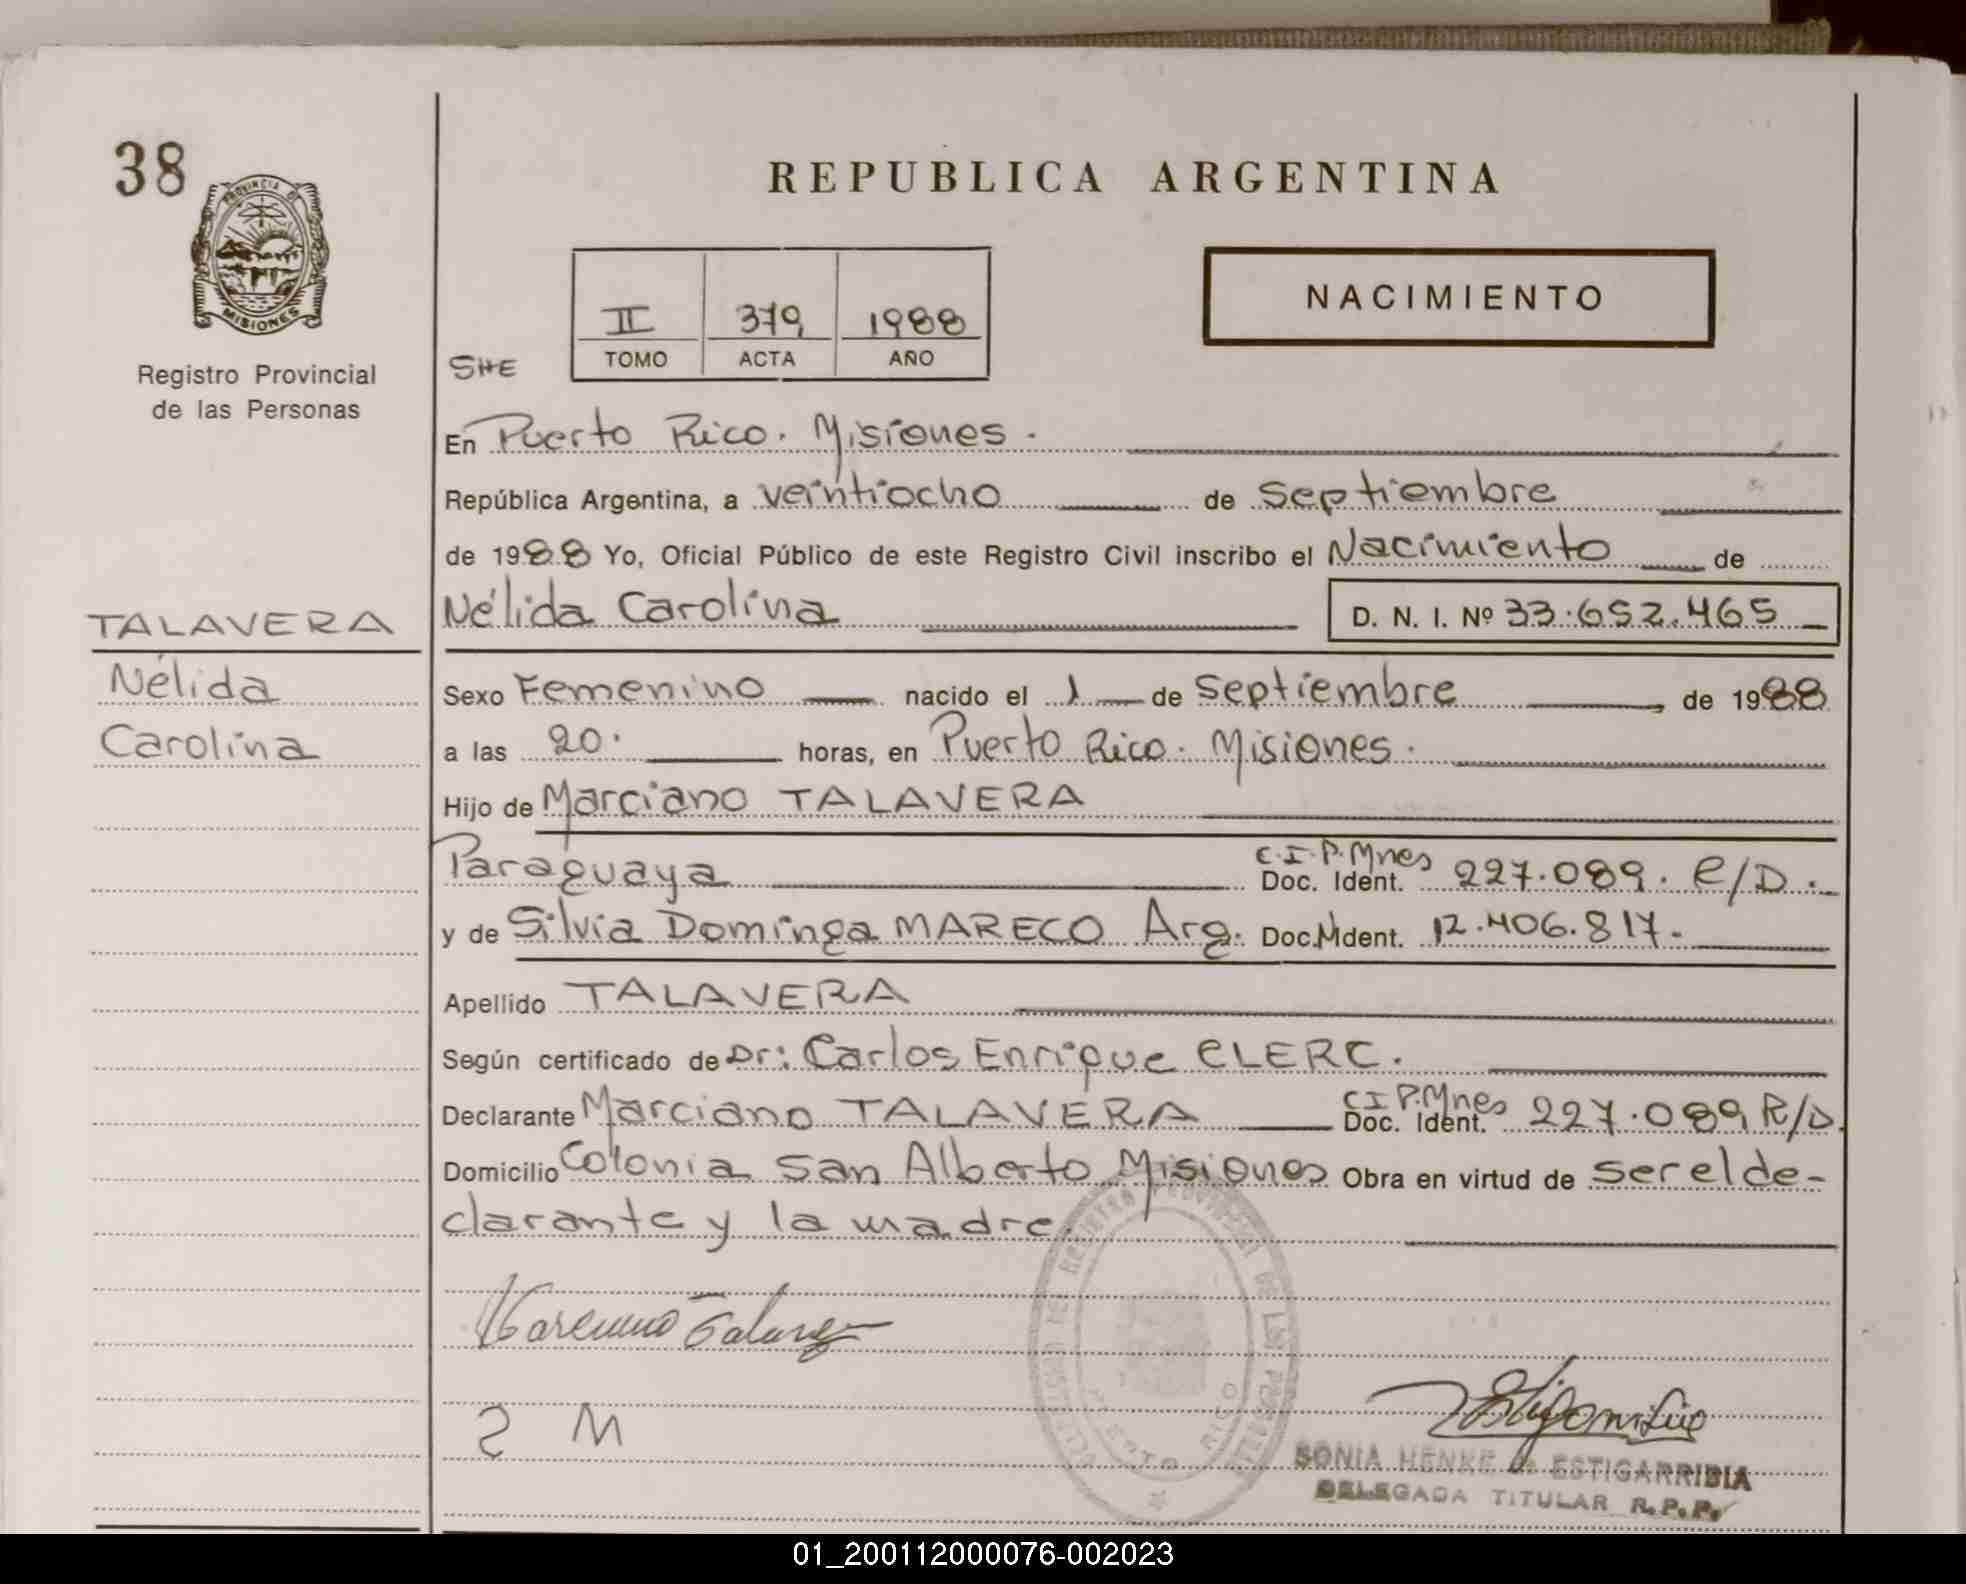 38
PROVINCIA DE
MISIONES
Registro Provincial
de las Personas
REPUBLICA ARGENTINA
II 379 1988
TOMO ACTA AÑO
NACIMIENTO
SHE
En Puerto Rico. Misiones.
República Argentina, a veintiocho de septiembre
de 1988 Yo, Oficial Público de este Registro Civil inscribo el Nacimiento de
Nélida Carolina D. N. I. Nº 33.652.465
TALAVERA
Nélida
Carolina
Sexo Femenino nacido el 1 de septiembre de 1988
a las 20. horas, en Puerto Rico. Misiones.
Hijo de Marciano TALAVERA
Paraguaya C.I.P.Mnes Doc. Ident. 227.089. R/D.
y de Silvia Dominga MARECO Arg. Doc.Mdent. 12.406.817.
Apellido TALAVERA
Según certificado de Dr: Carlos Enrique CLERC.
Declarante Marciano TALAVERA C I P.Mnes Doc. Ident. 227.089 R/D.
Domicilio Colonia San Alberto Misiones Obra en virtud de ser el de-
clarante y la madre.
Marciano Talavera
S M
DELEGACION DEL REGISTRO PROVINCIAL DE LAS PERSONAS
PUERTO RICO
SONIA HENKE de ESTIGARRIBIA
DELEGADA TITULAR R.P.P.
01_200112000076-002023